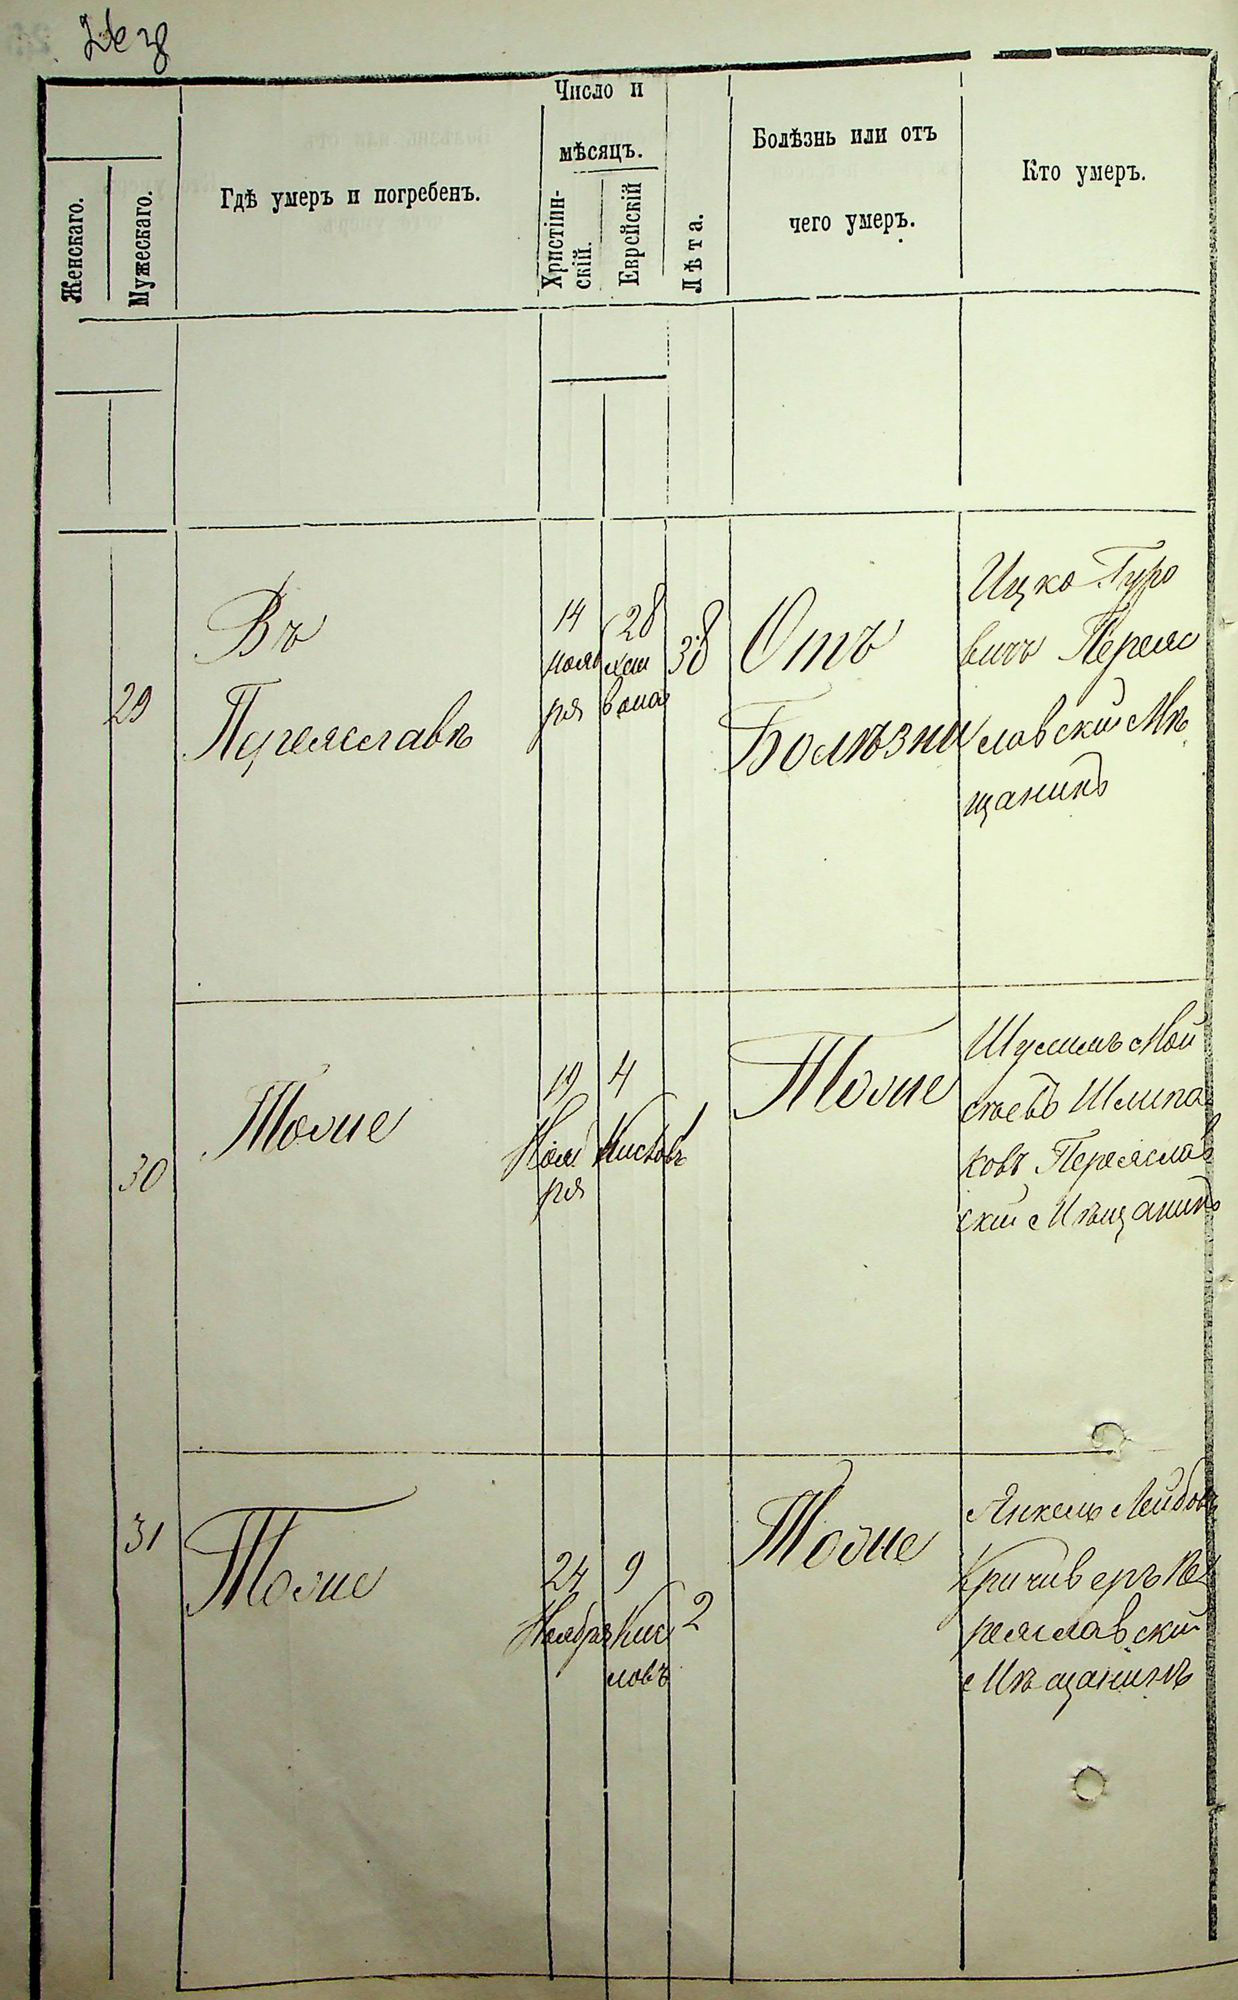 Женскаго.
Мужескаго.
Гдѣ умеръ и погребенъ.
Число и
мѣсяцъ.
Христіан-
скій.
Еврейскій
Лѣта.
Болѣзнь или отъ
чего умеръ.
Кто умеръ.
29
Въ
Переяславѣ
14
нояб
ря
28
хеш
вона
38
Отъ
Болѣзни
Ицко Гуро
вичъ Переяс
лавский Мѣ
щанинъ
30
Тоже
19
Нояб
ря
4
Кислевъ
1
Тоже
Шулимъ Мой
сѣевъ Шлипа
ковъ Переяслав
ский Мѣщанинъ
31
Тоже
24
Ноября
9
Кис
ловъ
2
Тоже
Янкель Лейбовъ
Кричиверъ Пе
реяславский
Мѣщанинъ